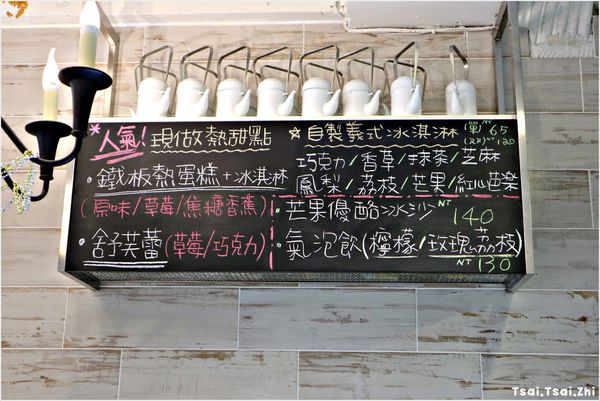 *人氣! 現做熱甜點
·鐵板熱蛋糕+冰淇淋
(原味/草莓/焦糖香蕉)
·舒芙蕾(草莓/巧克力)
☆自製義式冰淇淋 (單)NT 65
(双)NT 120
巧克力/香草/抹茶/芝麻
鳳梨/荔枝/芒果/紅心芭樂
·芒果優酪冰沙 NT 140
·氣泡飲(檸檬/玫瑰荔枝)
NT 130
Tsai.Tsai.Zhi